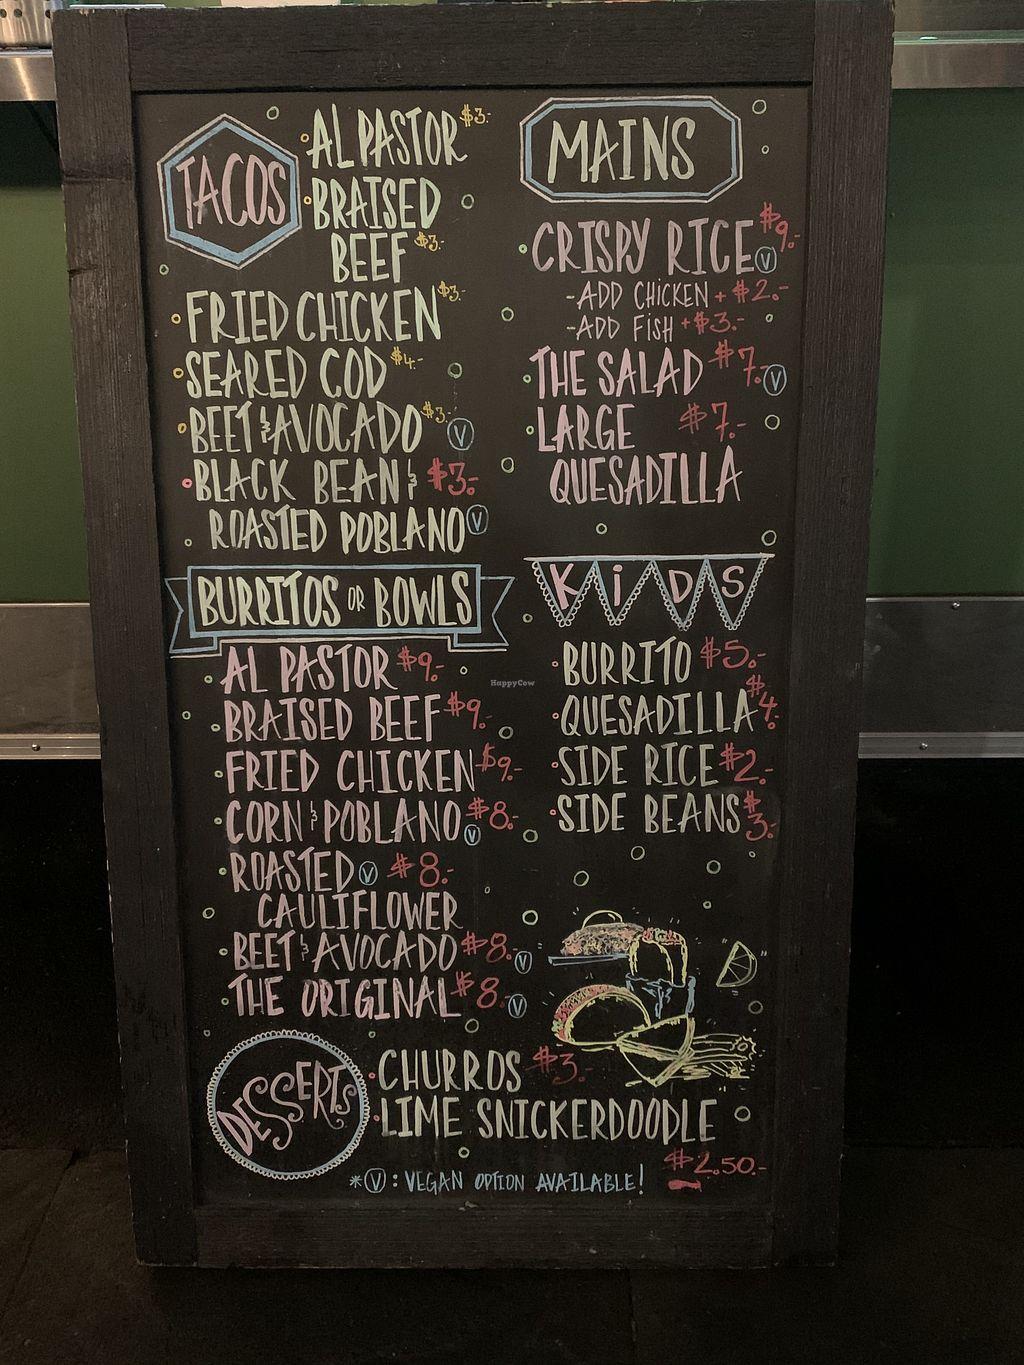 TACOS
AL PASTOR $3.-
BRAISED
BEEF $3.-
FRIED CHICKEN $3.-
SEARED COD $4.-
BEET & AVOCADO $3.- V
BLACK BEAN & $3.-
ROASTED POBLANO V
BURRITOS OR BOWLS
AL PASTOR $9.-
BRAISED BEEF $9.-
FRIED CHICKEN $9.-
CORN & POBLANO $8.- V
ROASTED V $8.-
CAULIFLOWER
BEET & AVOCADO $8.- V
THE ORIGINAL $8.- V
MAINS
CRISPY RICE $9.- V
-ADD CHICKEN + $2.-
-ADD FISH + $3.-
THE SALAD $7.- V
LARGE $7.-
QUESADILLA
KiDS
BURRITO $5.-
QUESADILLA $4.-
SIDE RICE $2.-
SIDE BEANS $3.-
HappyCow
DESSERTS
CHURROS $3.-
LIME SNICKERDOODLE
$2.50.-
*V: VEGAN OPTION AVAILABLE!